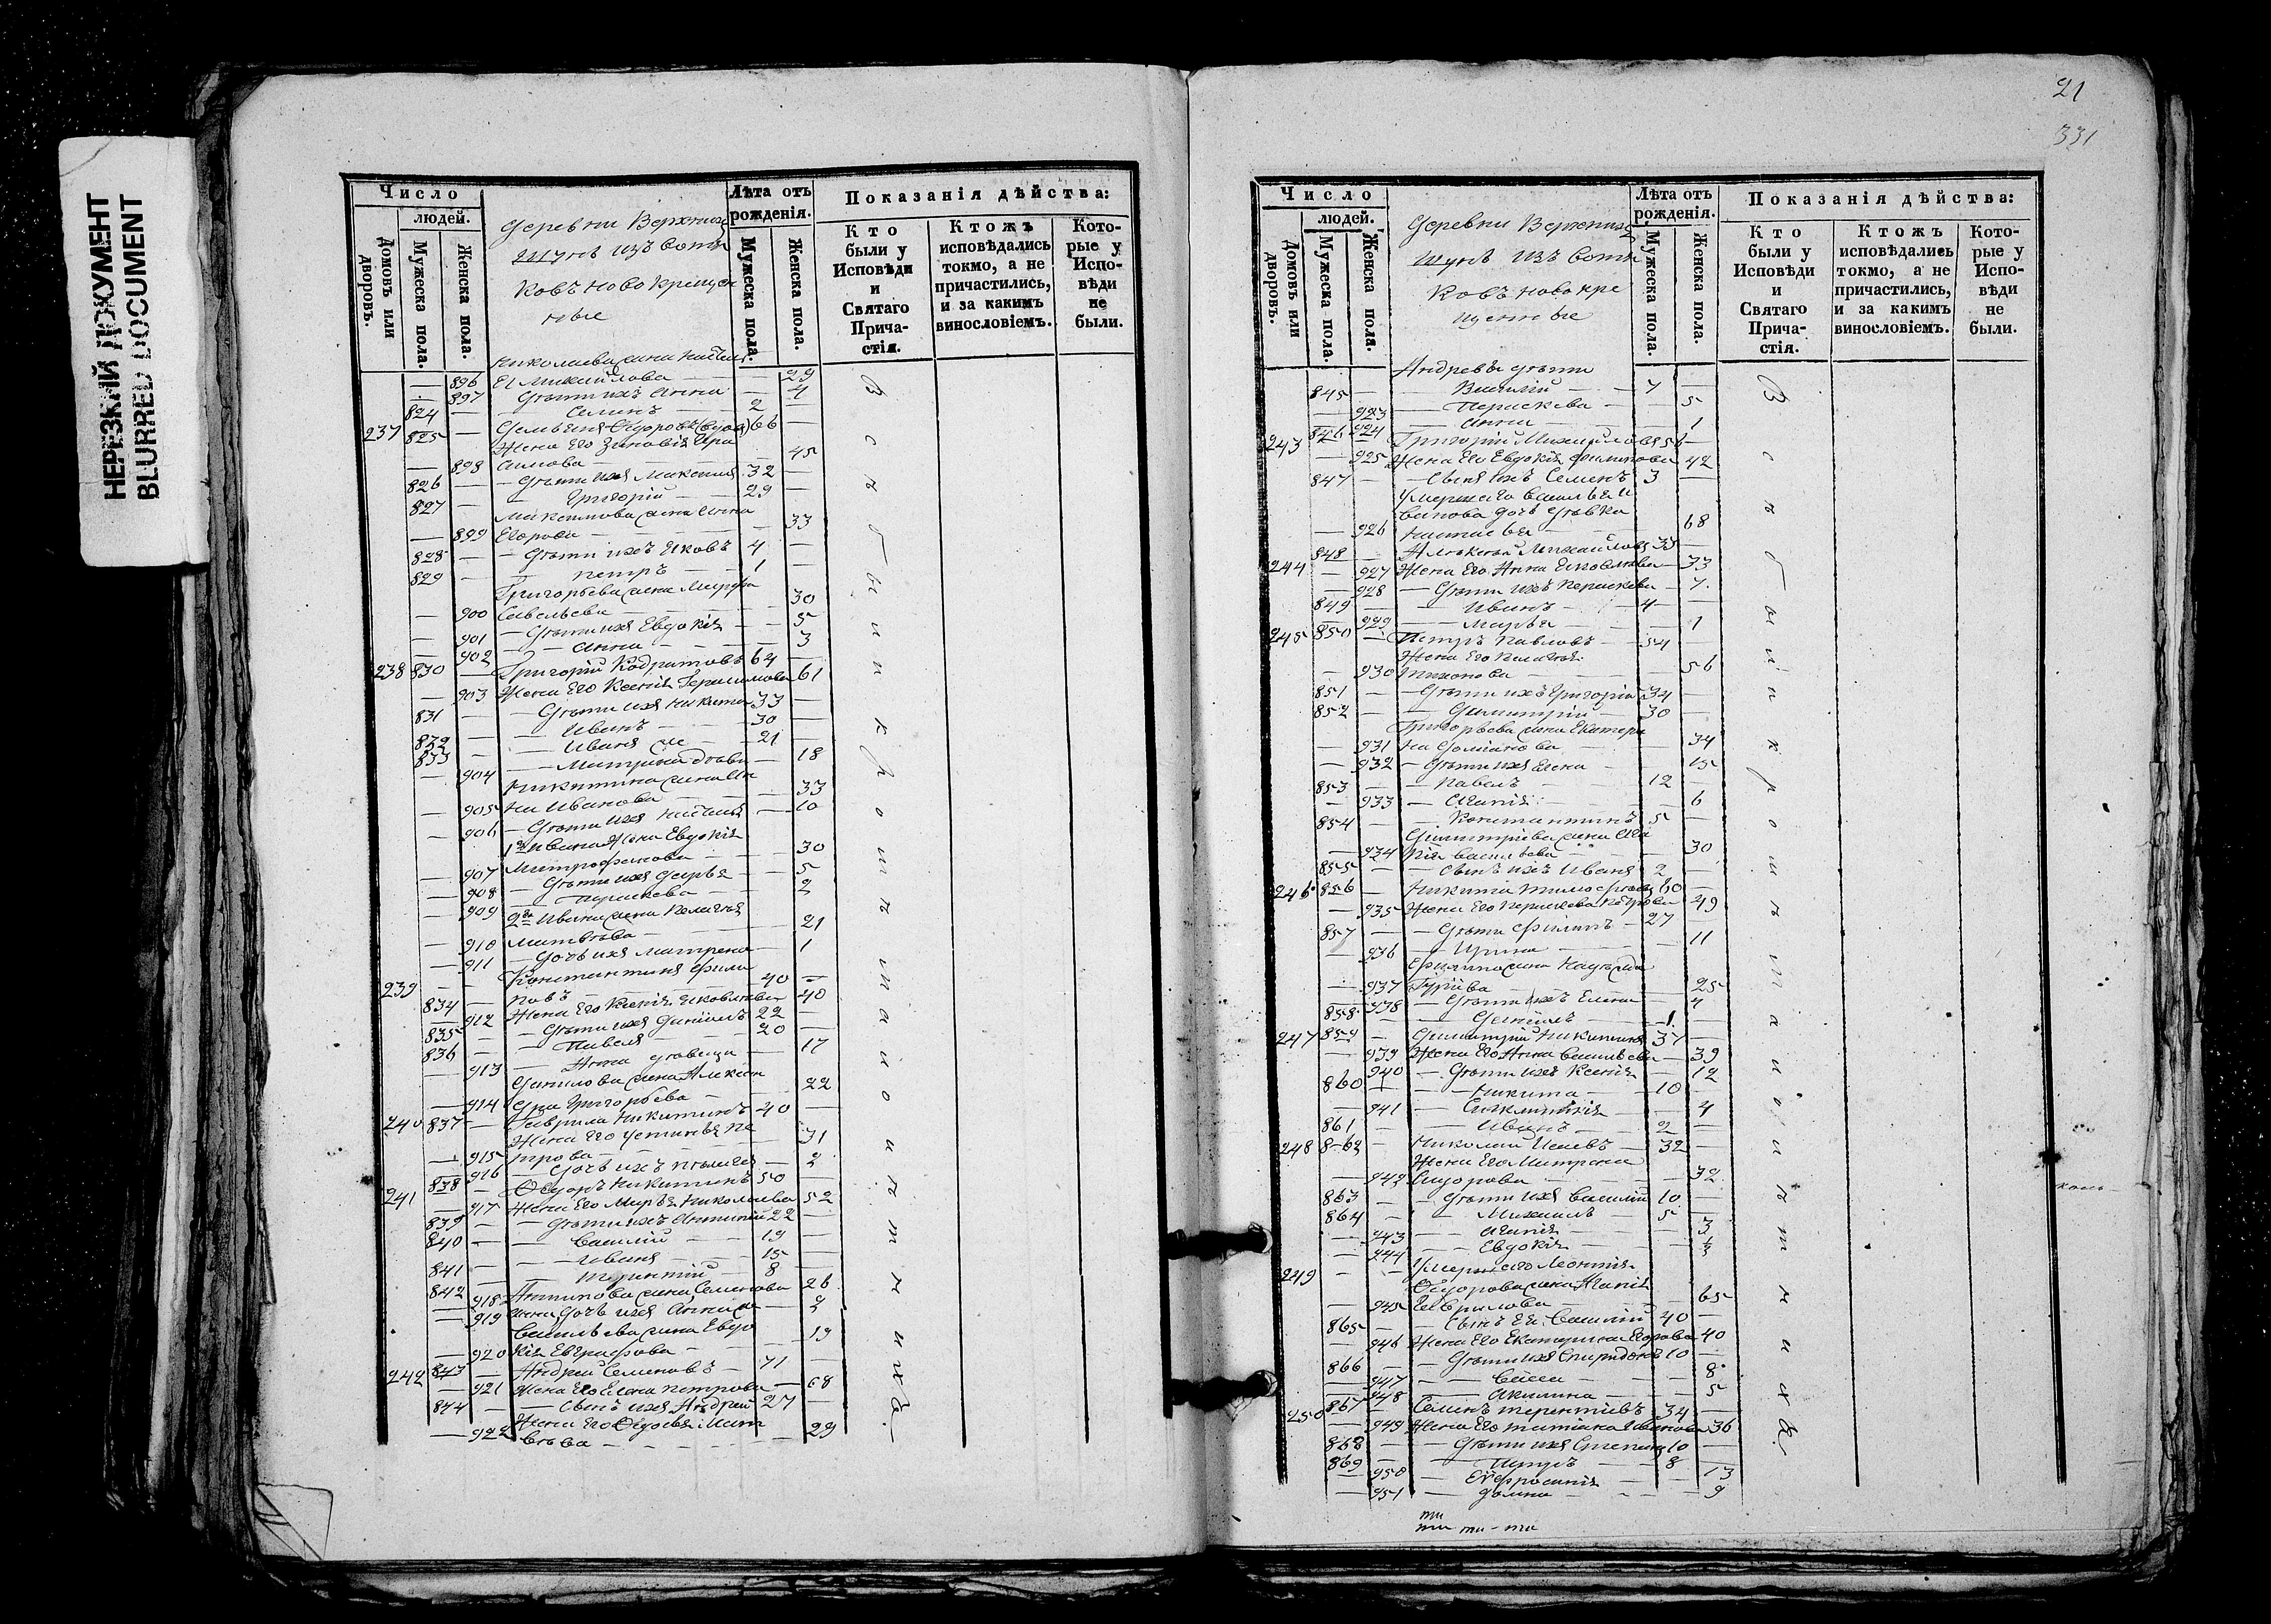 НЕРЕЗКИЙ ДОКУМЕНТ
BLURRED DOCUMENT
Число
людей.
Домовъ или дворовъ.
Мужеска пола.
Женска пола.
Деревни Верхнихъ
Шунъ изъ вотя
ковъ новокрещен
ные
Лѣта отъ рожденія.
Мужеска пола.
Женска пола.
Показанія дѣйства:
Кто были у Исповѣди и Святаго Причастія.
Ктожъ исповѣдались токмо, а не причастились, и за какимъ винословіемъ.
Которые у Исповѣди не были.
Николаева жена
896 Михайлова — 29
897 Дѣти ихъ Анна — 4
824 Семенъ — 2
237 825 66
Жена его Зиновія
898 45
826 Дѣти ихъ 32
827 Григорій — 29
жена Анна
899 Егорова — 33
828 Дѣти ихъ Яковъ 4
829 Петръ — 1
Григорьева жена Марфа
900 Савельева — 30
901 Дѣти ихъ Евдокія — 5
902 Анна — 3
238 830 Григорій Кодратовъ 64
903 Жена его Ксенія Герасимова 61
831 Дѣти ихъ Никита 33
832 Иванъ — 30
833 Иванъ 21
904 18
Никитина жена Ан
905 на Иванова — 33
906 Дѣти ихъ — 10
1го Ивана жена Евдокія
907 Митрофанова — 30
908 Дѣти ихъ Дарья — 5
909 — 2
2го Ивана жена Пелагея
910 Матвѣева — 21
911 Дочь ихъ Матрена — 1
239 Константинъ Фили
834 повъ — 40
912 Жена его Ксенія Яковлева 40
835 Дѣти ихъ Данилъ 22
836 Павелъ 20
913 Анна дѣвица 17
Данилова жена Алексан
914 дра Григорьева — 22
240 837 Гаврила Никитинъ 40
Жена его Устинья Пе
915 трова — 31
916 Дочь ихъ Пелагея — 2
241 838 Ѳедоръ Никитинъ 50
917 Жена его Марья Николаева 52
839 Дѣти ихъ 22
840 Василій 19
841 Иванъ 15
842 Терентій 8
918 жена Семенова 26
919 Дочь ихъ Анна 2
Васильева жена Евдо
920 кія Евграфова 19
242 843 Андрей Семеновъ — 71
921 Жена его Елена Петрова — 68
844 Сынъ ихъ Андрей 27
922 Жена его Ѳедосья Мат
вѣева — 29
Вси были
и кро
ши
и
21
331
Число
людей.
Домовъ или дворовъ.
Мужеска пола.
Женска пола.
Деревни Верхнихъ
Шунъ изъ вотя
ковъ новокре
щенные
Лѣта отъ рожденія.
Мужеска пола.
Женска пола.
Показанія дѣйства:
Кто были у Исповѣди и Святаго Причастія.
Ктожъ исповѣдались токмо, а не причастились, и за какимъ винословіемъ.
Которые у Исповѣди не были.
Андрея дѣти
845 Василій — 7
923 Параскева — 5
924 Анна — 1
243 846 Григорій Михайловъ 56
925 Жена его Евдокія Филипова 42
847 Сынъ ихъ Семенъ 3
Умершаго Василья И
ванова дочь дѣвка
926 Настасья 68
244 848 Алексѣй Михайловъ 33
927 Жена его Анна Яковлева — 33
928 Дѣти ихъ Параскева — 7
849 Иванъ — 4
929 Марья — 1
245 850 Петръ Павловъ — 54
Жена его Пелагея
930 Тихонова — 56
851 Дѣти ихъ Григорій 34
852 Димитрій 30
Григорьева жена Екатери
931 на 34
932 Дѣти ихъ Елена — 15
853 Павелъ — 12
933 Агапія — 6
854 Константинъ 5
Димитріева жена Ага
934 пія Васильева 30
855 Сынъ ихъ Иванъ 2
246 856 Никита Тимофѣевъ 60
935 Жена его Параскева Петрова 49
857 Дѣти Филипъ — 27
936 Ирина — 11
Филипа жена Надежда
937 Гурьева — 25
938 Дѣти ихъ Елена — 4
858 Данилъ — 1
247 859 Димитрій Никитинъ 37
939 Жена его Анна Васильева — 39
940 Дѣти ихъ Ксенія — 12
860 Никита — 10
941 Синклитикія — 4
861 Иванъ — 2
248 862 Николай Исаевъ — 32
Жена его Матрена
942 Сидорова — 32
863 Дѣти ихъ Василій 10
864 Михаилъ — 5
943 Агапія — 3
944 Евдокія
249 Умершаго Леонтія
Ѳедорова жена Агапія
945 Гаврилова 65
865 Сынъ ея Василій 40
946 Жена его Екатерина Егорова 40
866 Дѣти ихъ Спиридонъ 10
947 8
948 Акилина — 5
250 867 Семенъ Терентіевъ 34
949 Жена его Татіана Иванова 36
868 Дѣти ихъ Степанъ 10
869 8
950 Евфросинія 13
951 Домна — 9
Вси были
и кро
ши
и